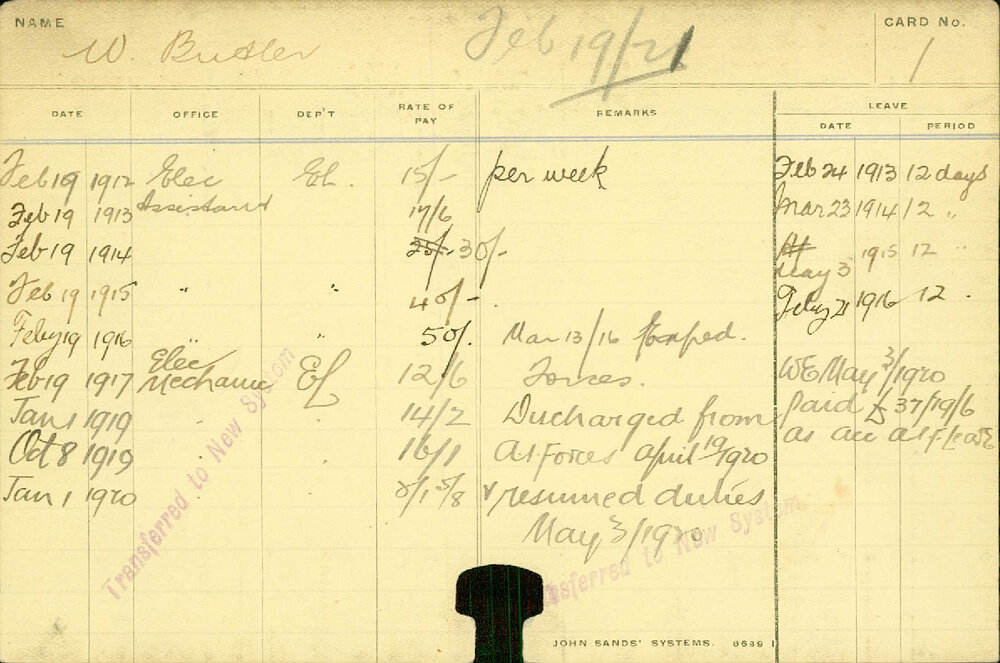 NAME
W. Butler
Feb 19/21
CARD No.
1
DATE OFFICE DEP'T RATE OF PAY REMARKS LEAVE
DATE PERIOD
Feb 19 1912 Elec El. 15/- per week Feb 24 1913 12 days
Feb 19 1913 Assistant 17/6 Mar 23 1914 12 "
Feb 19 1914 25/- 30/- May 3 1915 12 "
Feb 19 1915 " " 40/- Feby 21 1916 12 "
Feby 19 1916 " " 50/- Mar 13/16
Feb 19 1917 Elec Mechanic El 12/6 Forces. WE May 3/1920
Jan 1 1919 " " 14/2 Discharged from Paid £37/19/6
Oct 8 1919 " " 16/1 A I Forces April 19/1920 as acc A I F Leave
Jan 1 1920 resumed duties
May 3/1920
Transferred to New System
Transferred to New System
JOHN SANDS' SYSTEMS. 8689 1